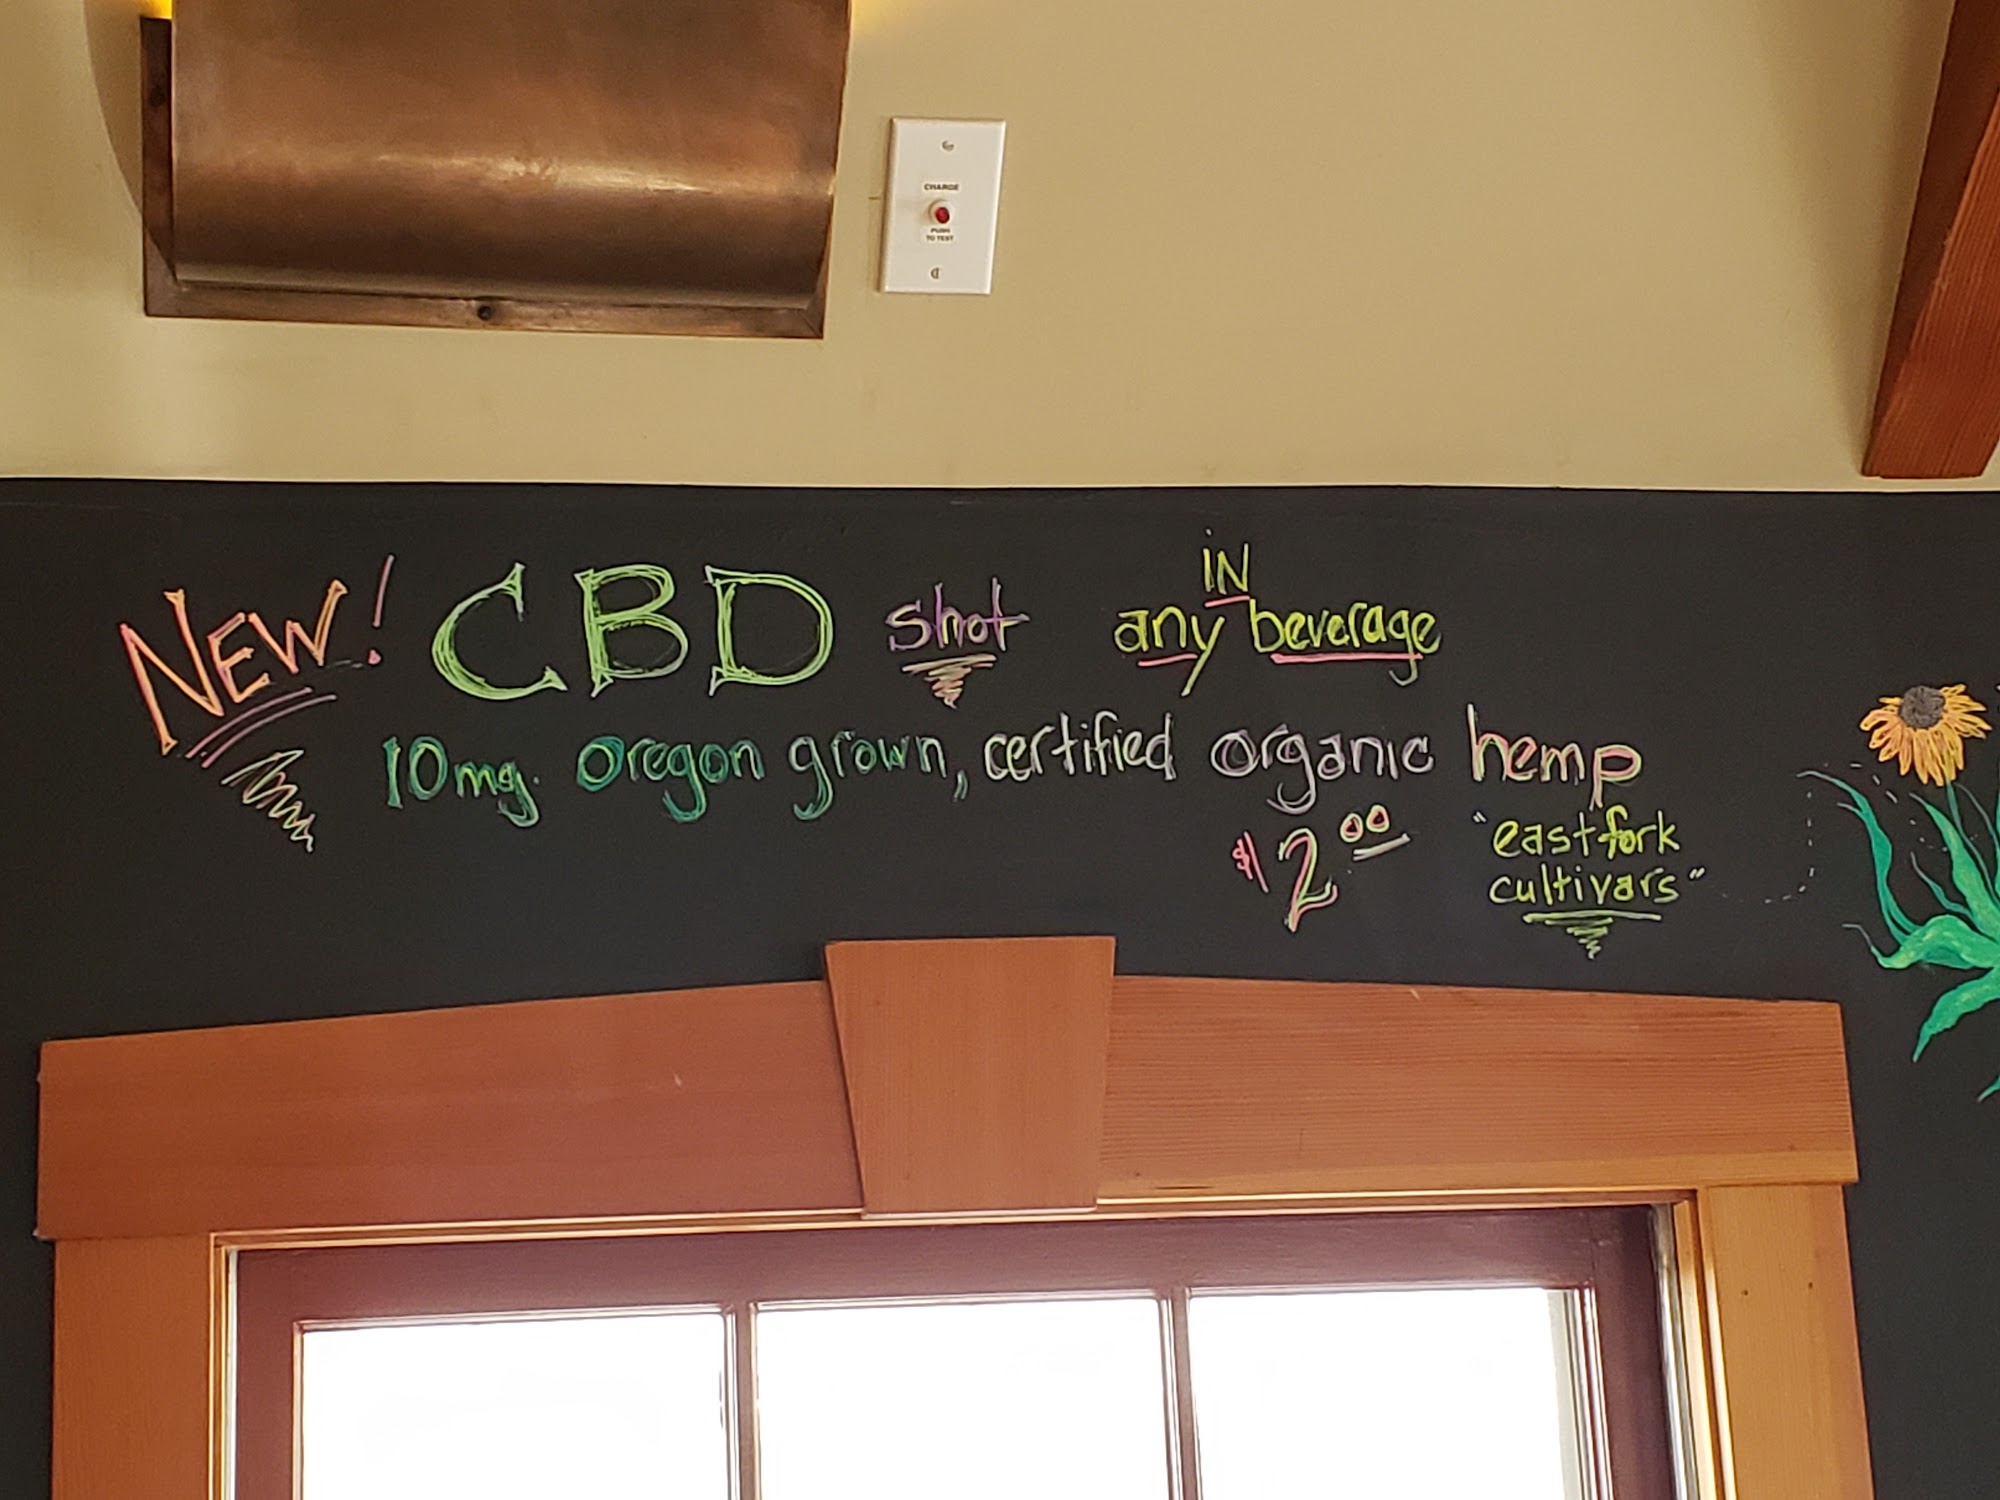 CHARGE
PUSH
TO TEST
NEW! CBD shot IN any beverage
10mg. oregon grown, certified organic hemp
$2.00
"eastfork
cultivars"